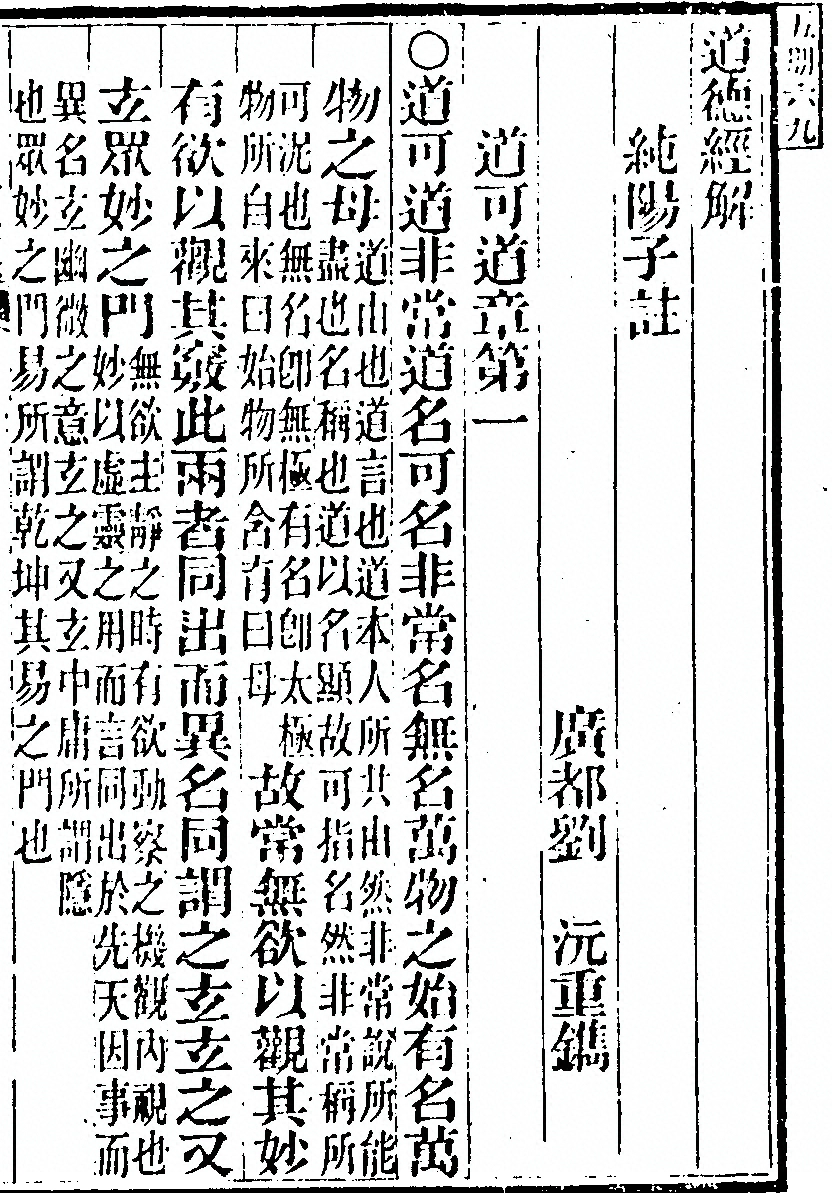 道德經解
純陽子註
廣都劉　沅重鐫
道可道章第一
○道可道非常道名可名非常名無名萬物之始有名萬
物之母
道由也道言也道本人所共由然非常說所能
盡也名稱也道以名顯故可指名然非常稱所
可泥也無名卽無極有名卽太極
物所自來曰始物所含育曰母
故常無欲以觀其妙
有欲以觀其竅此兩者同出而異名同謂之玄玄之又
玄眾妙之門
無欲主靜之時有欲動察之機觀內視也
妙以虛靈之用而言同出於先天因事而
異名玄幽微之意玄之又玄中庸所謂隱
也眾妙之門易所謂乾坤其易之門也